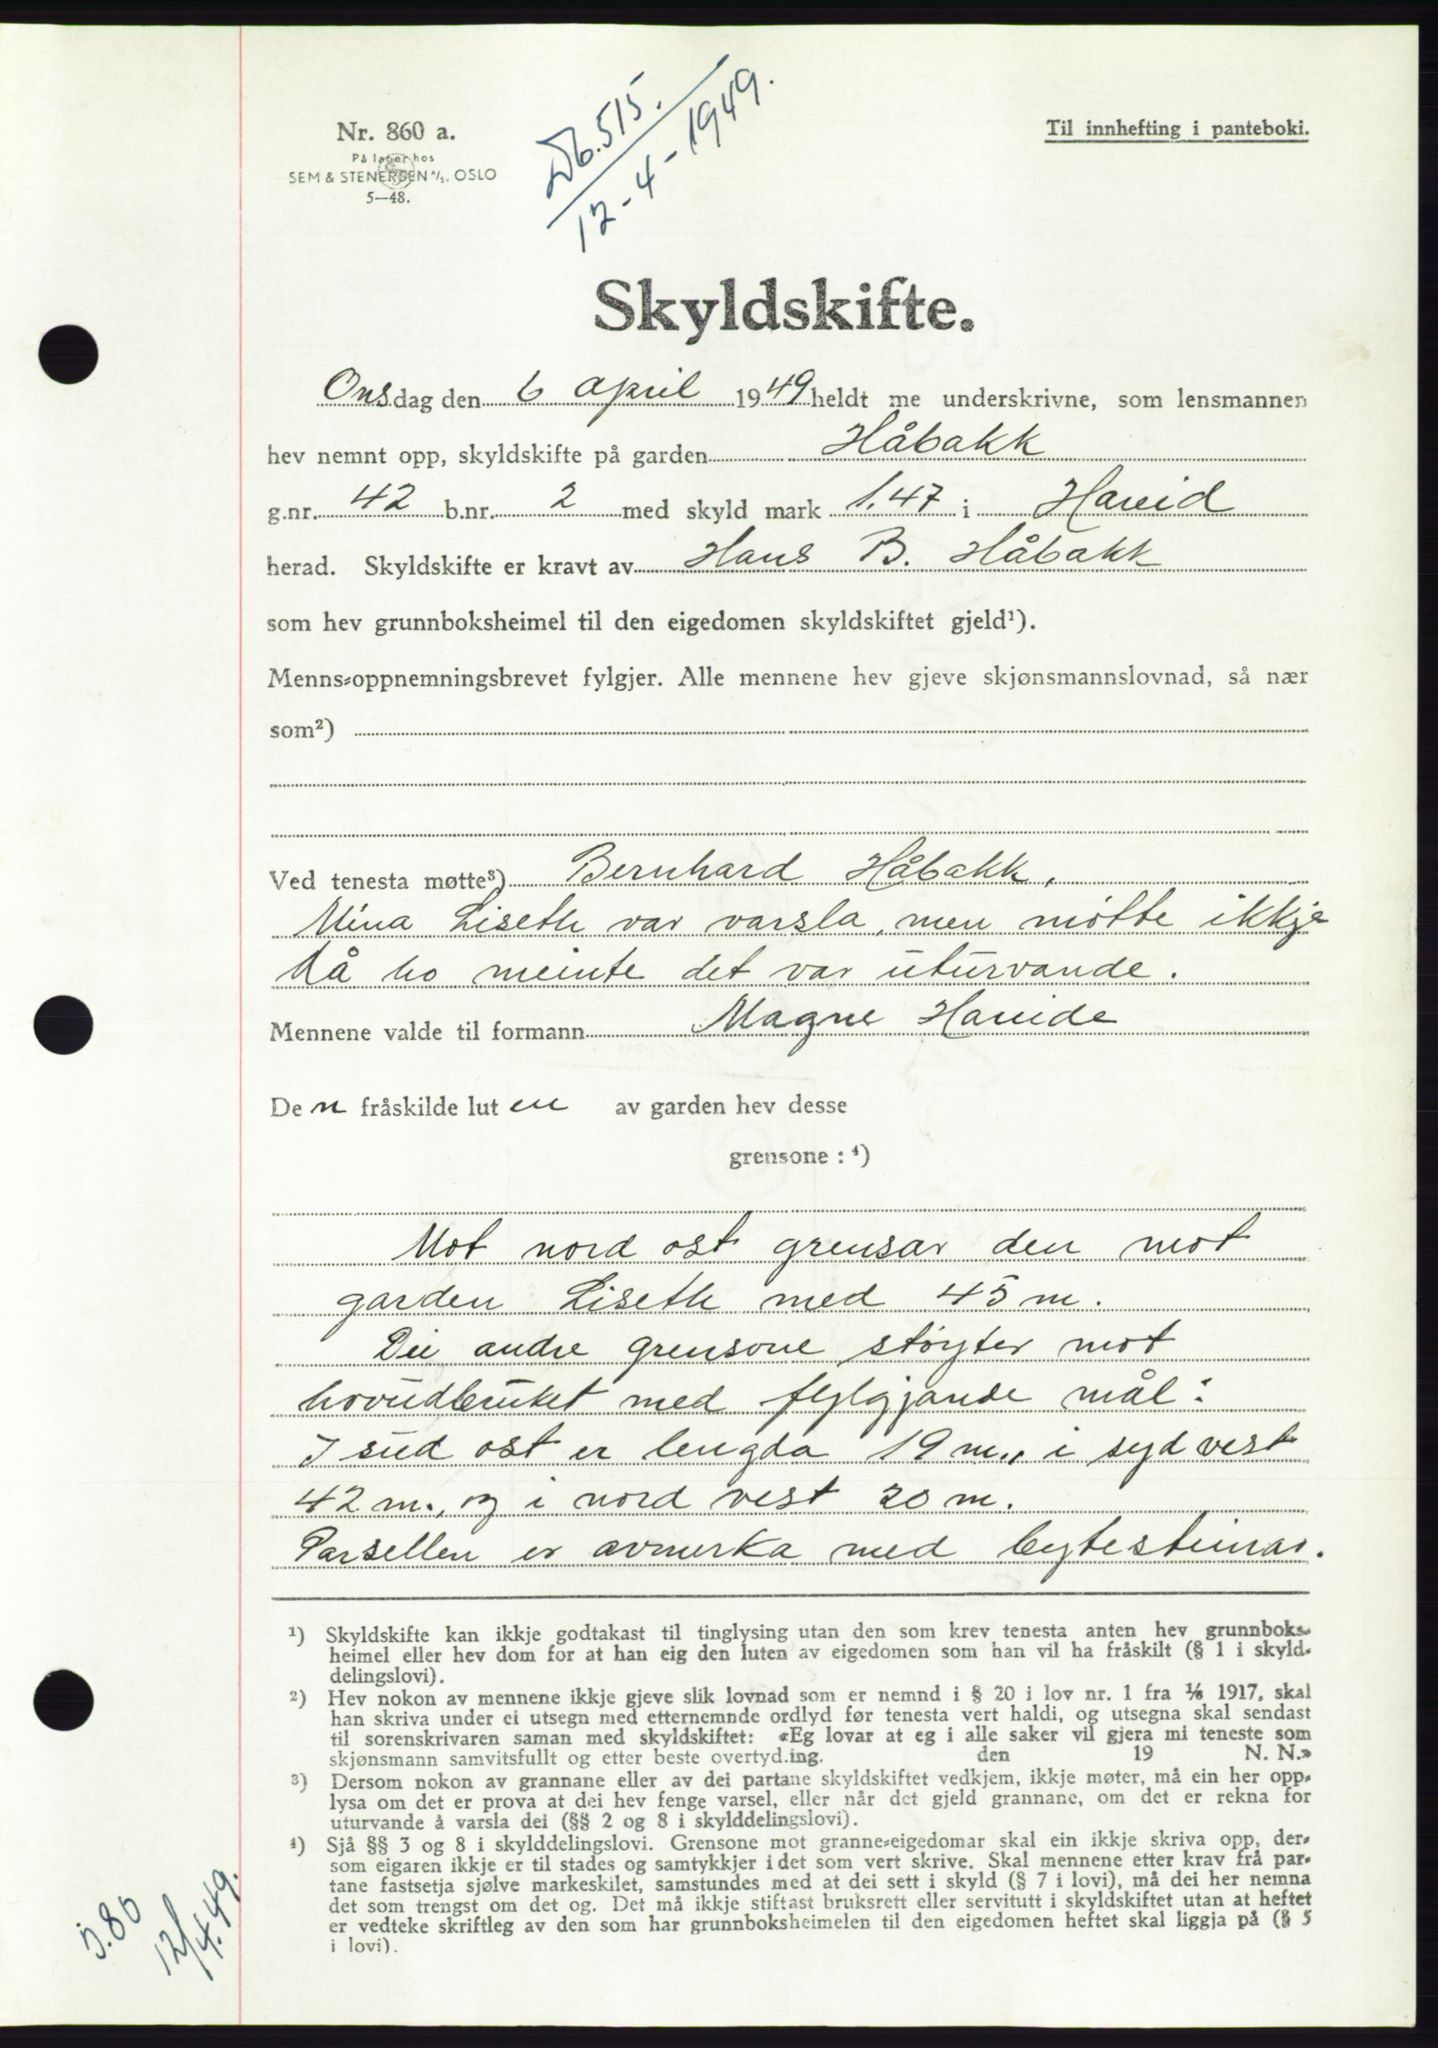 Nr. 860 a.
På lager hos
SEM & STENERSEN A/S, OSLO
5—48.
Db. 515.
12-4-1949.
Til innhefting i panteboki.
Skyldskifte.
Onsdag den 6 april 1949 heldt me underskrivne, som lensmannen
hev nemnt opp, skyldskifte på garden Håbakk
g.nr. 42 b.nr. 2 med skyld mark 1.47 i Hareid
herad. Skyldskifte er kravt av Hans B. Håbakk
som hev grunnboksheimel til den eigedomen skyldskiftet gjeld¹).
Menns-oppnemningsbrevet fylgjer. Alle mennene hev gjeve skjønsmannslovnad, så nær
som²)
Ved tenesta møtte³) Bernhard Håbakk,
Mina Liseth var varsla, men møtte ikkje
då ho meinte det var uturvande.
Mennene valde til formann Magne Hareide
Den fråskilde luten av garden hev desse
grensone : ⁴)
Mot nord ost grensar den mot
garden Liseth med 45 m.
Dei andre grensone støyter mot
hovudbruket med fylgjande mål:
I sud ost er lengda 19 m., i syd vest
42 m., og i nord vest 20 m.
Parsellen er avmerka med bytesteinar.
¹) Skyldskifte kan ikkje godtakast til tinglysing utan den som krev tenesta anten hev grunnboks-
heimel eller hev dom for at han eig den luten av eigedomen som han vil ha fråskilt (§ 1 i skyld-
delingslovi).
²) Hev nokon av mennene ikkje gjeve slik lovnad som er nemnd i § 20 i lov nr. 1 fra 1/6 1917, skal
han skriva under ei utsegn med etternemnde ordlyd før tenesta vert haldi, og utsegna skal sendast
til sorenskrivaren saman med skyldskiftet: «Eg lovar at eg i alle saker vil gjera mi teneste som
skjønsmann samvitsfullt og etter beste overtyd.ing. den 19 N. N.»
³) Dersom nokon av grannane eller av dei partane skyldskiftet vedkjem, ikkje møter, må ein her opp-
lysa om det er prova at dei hev fenge varsel, eller når det gjeld grannane, om det er rekna for
uturvande å varsla dei (§§ 2 og 8 i skylddelingslovi).
⁴) Sjå §§ 3 og 8 i skylddelingslovi. Grensone mot granne-eigedomar skal ein ikkje skriva opp, der-
som eigaren ikkje er til stades og samtykkjer i det som vert skrive. Skal mennene etter krav frå par-
tane fastsetja sjølve markeskilet, samstundes med at dei sett i skyld (§ 7 i lovi), må dei her nemna
det som trengst om det og. Det må ikkje stiftast bruksrett eller servitutt i skyldskiftet utan at heftet
er vedteke skriftleg av den som har grunnboksheimelen til den eigedomen heftet skal liggja på (§ 5
i lovi).
5.80
12/4.49.